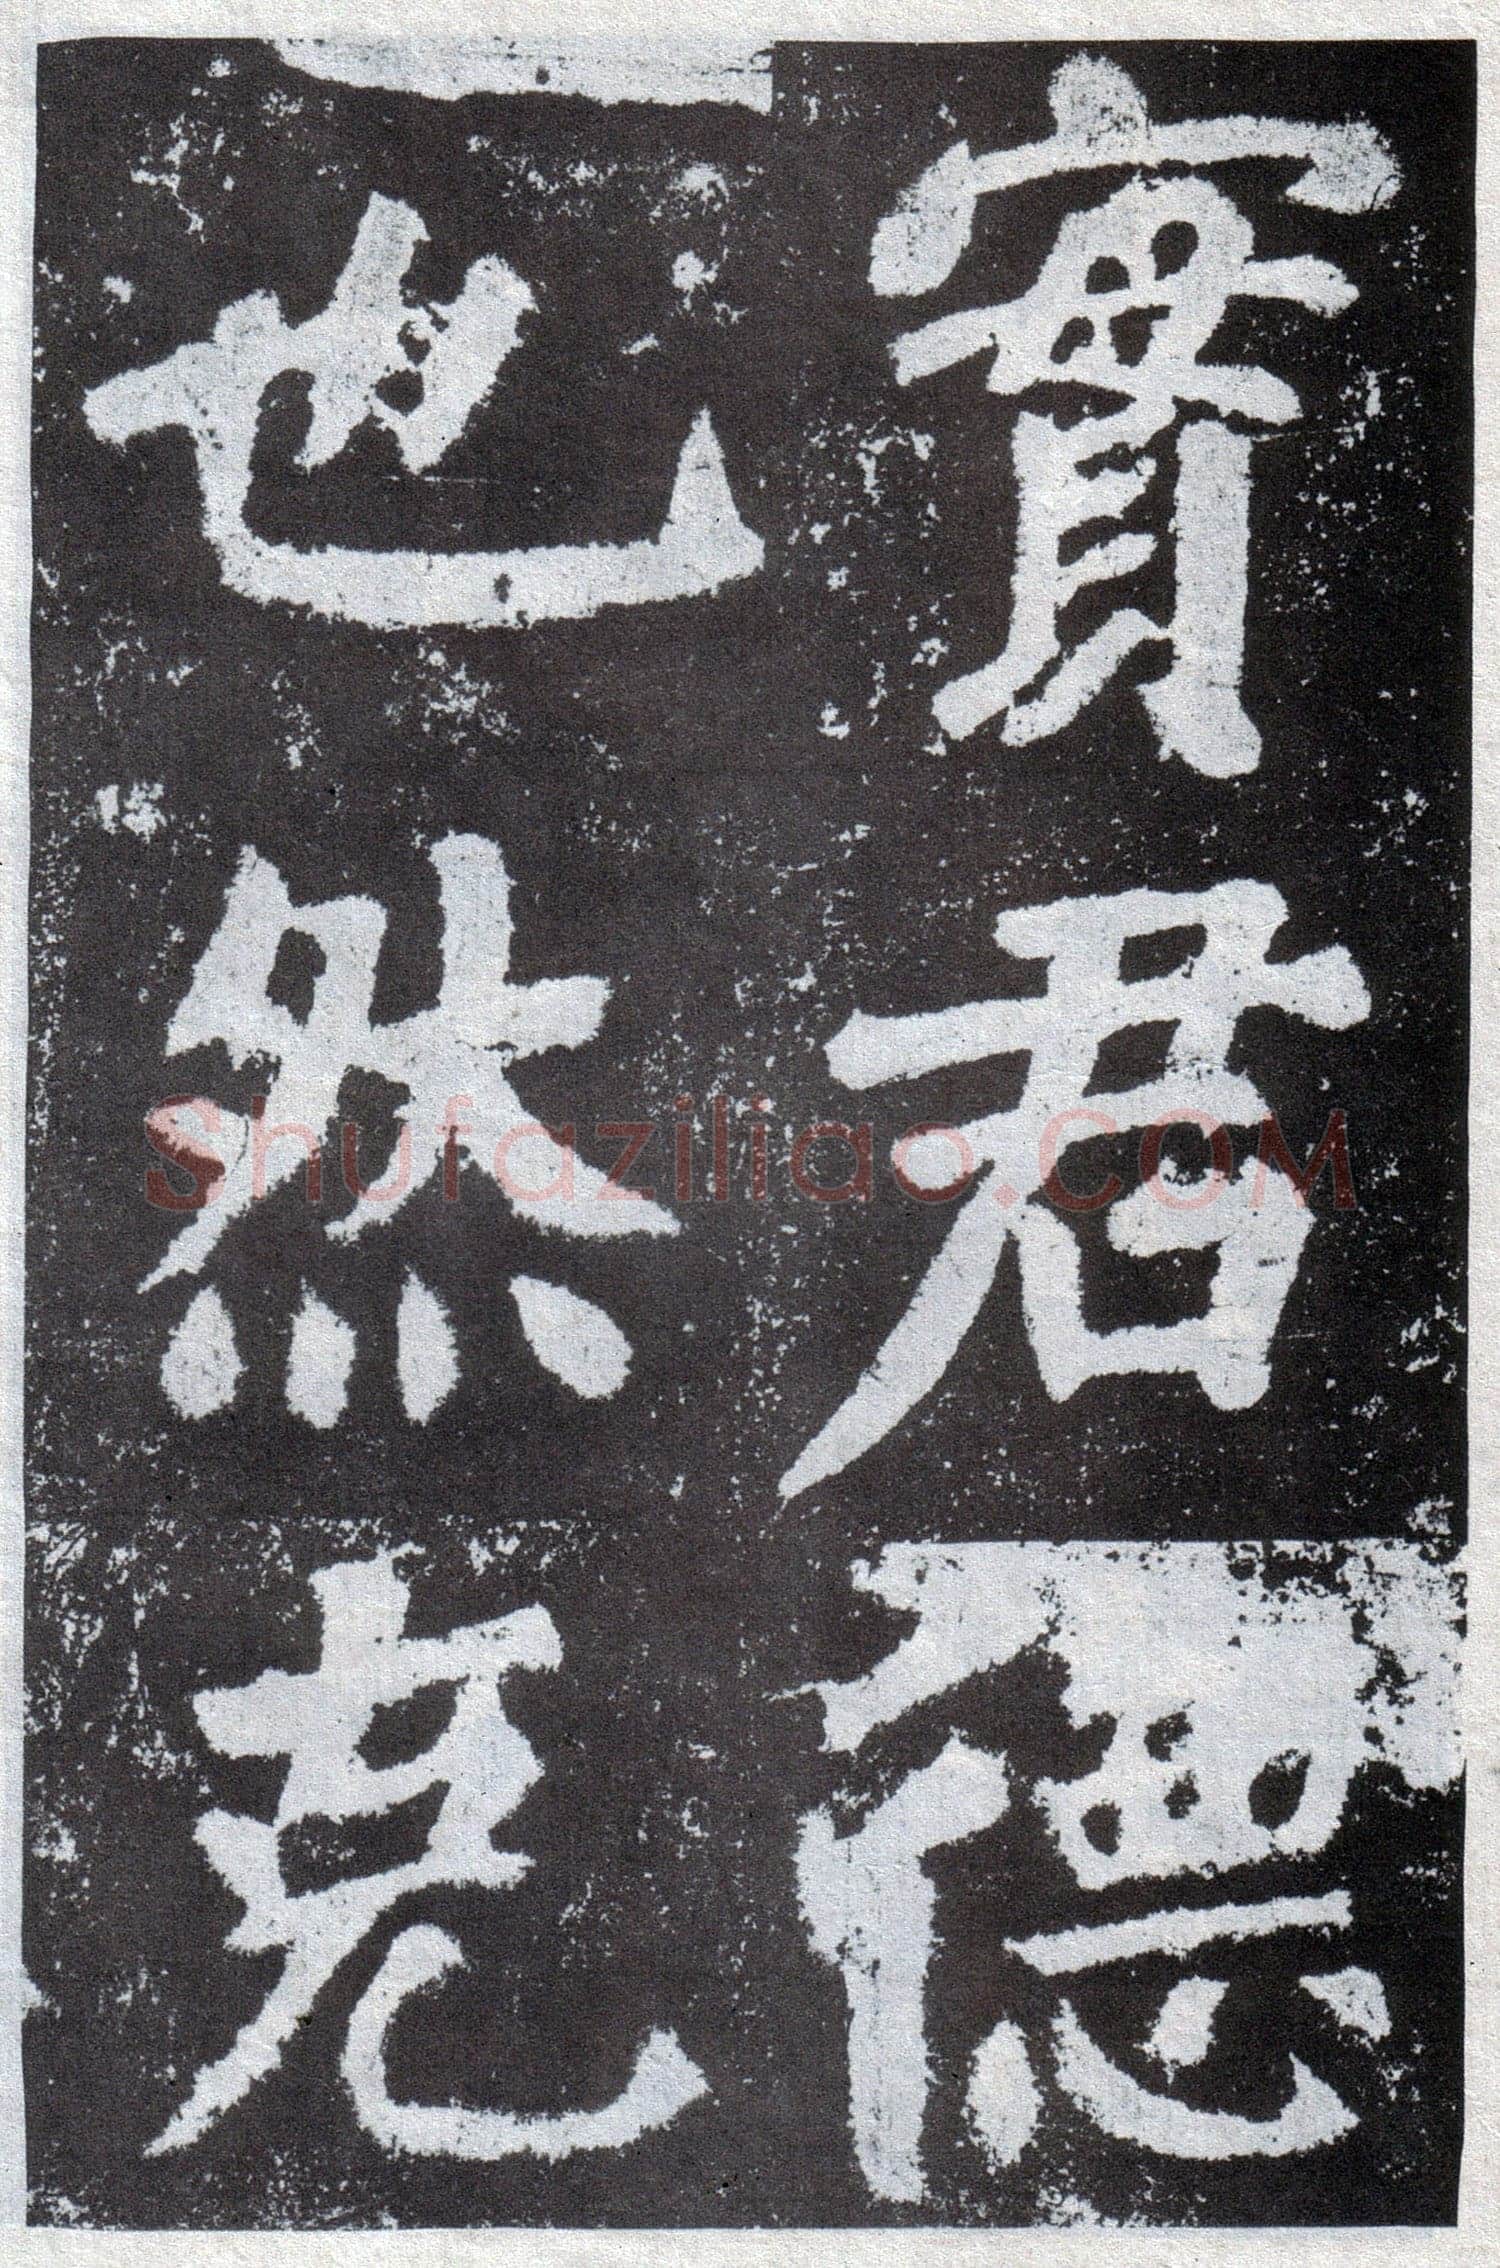 實君德
也然克
Shufaziliao.COM